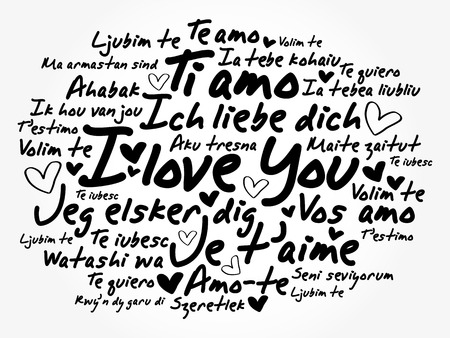 Te amo
Ljubim te
Volim te
Ma armastan sind
Ti amo
Ia tebe kohaiu
Te quiero
Ahabak
Ia tebea liubliu
Ik hou van jou
Ich liebe dich
T'estimo
Volim te
Aku tresna
Maite zaitut
I love You
Te iubesc
Te iubesc
Volim te
Jeg elsker dig
Vos amo
Ljubim te
Te iubesc
Je t'aime
T'estimo
Watashi wa
Te quiero
Amo-te
Seni seviyorum
Rwy'n dy garu di
Szeretlek
Ljubim te